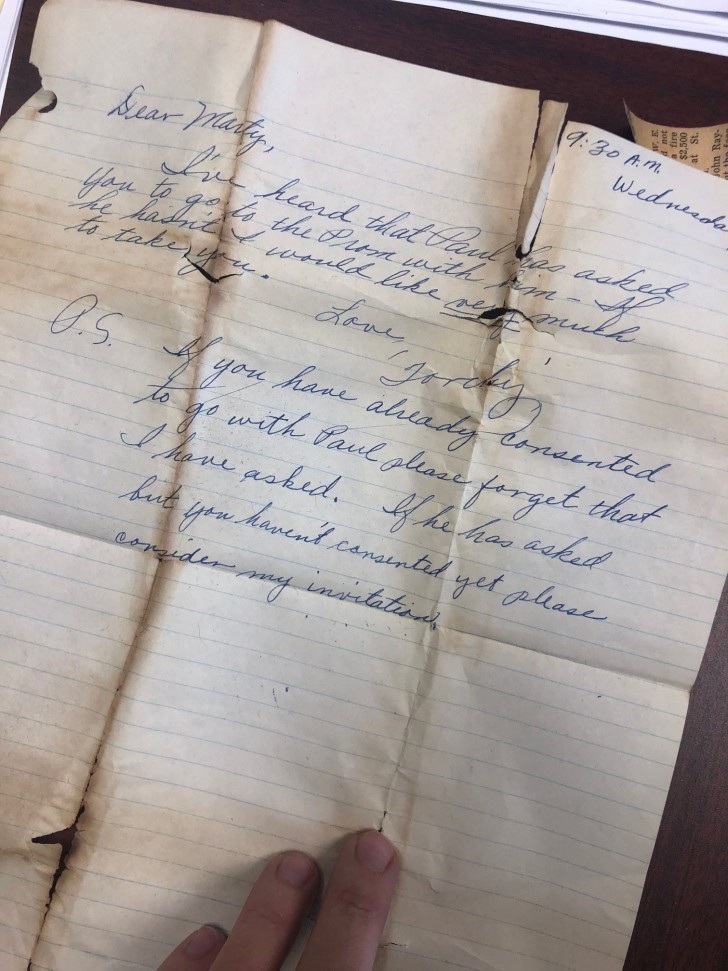 9:30 A.M.
Wednesda
Dear Marty,
I've heard that Paul has asked
you to go to the Prom with him - If
he hasn't I would like very much
to take you.
Love,
"Torchy"
P.S. If you have already consented
to go with Paul please forget that
I have asked. If he has asked
but you haven't consented yet please
consider my invitation.
W. E.
d not
fire
$2,500
at St.
John Ray-